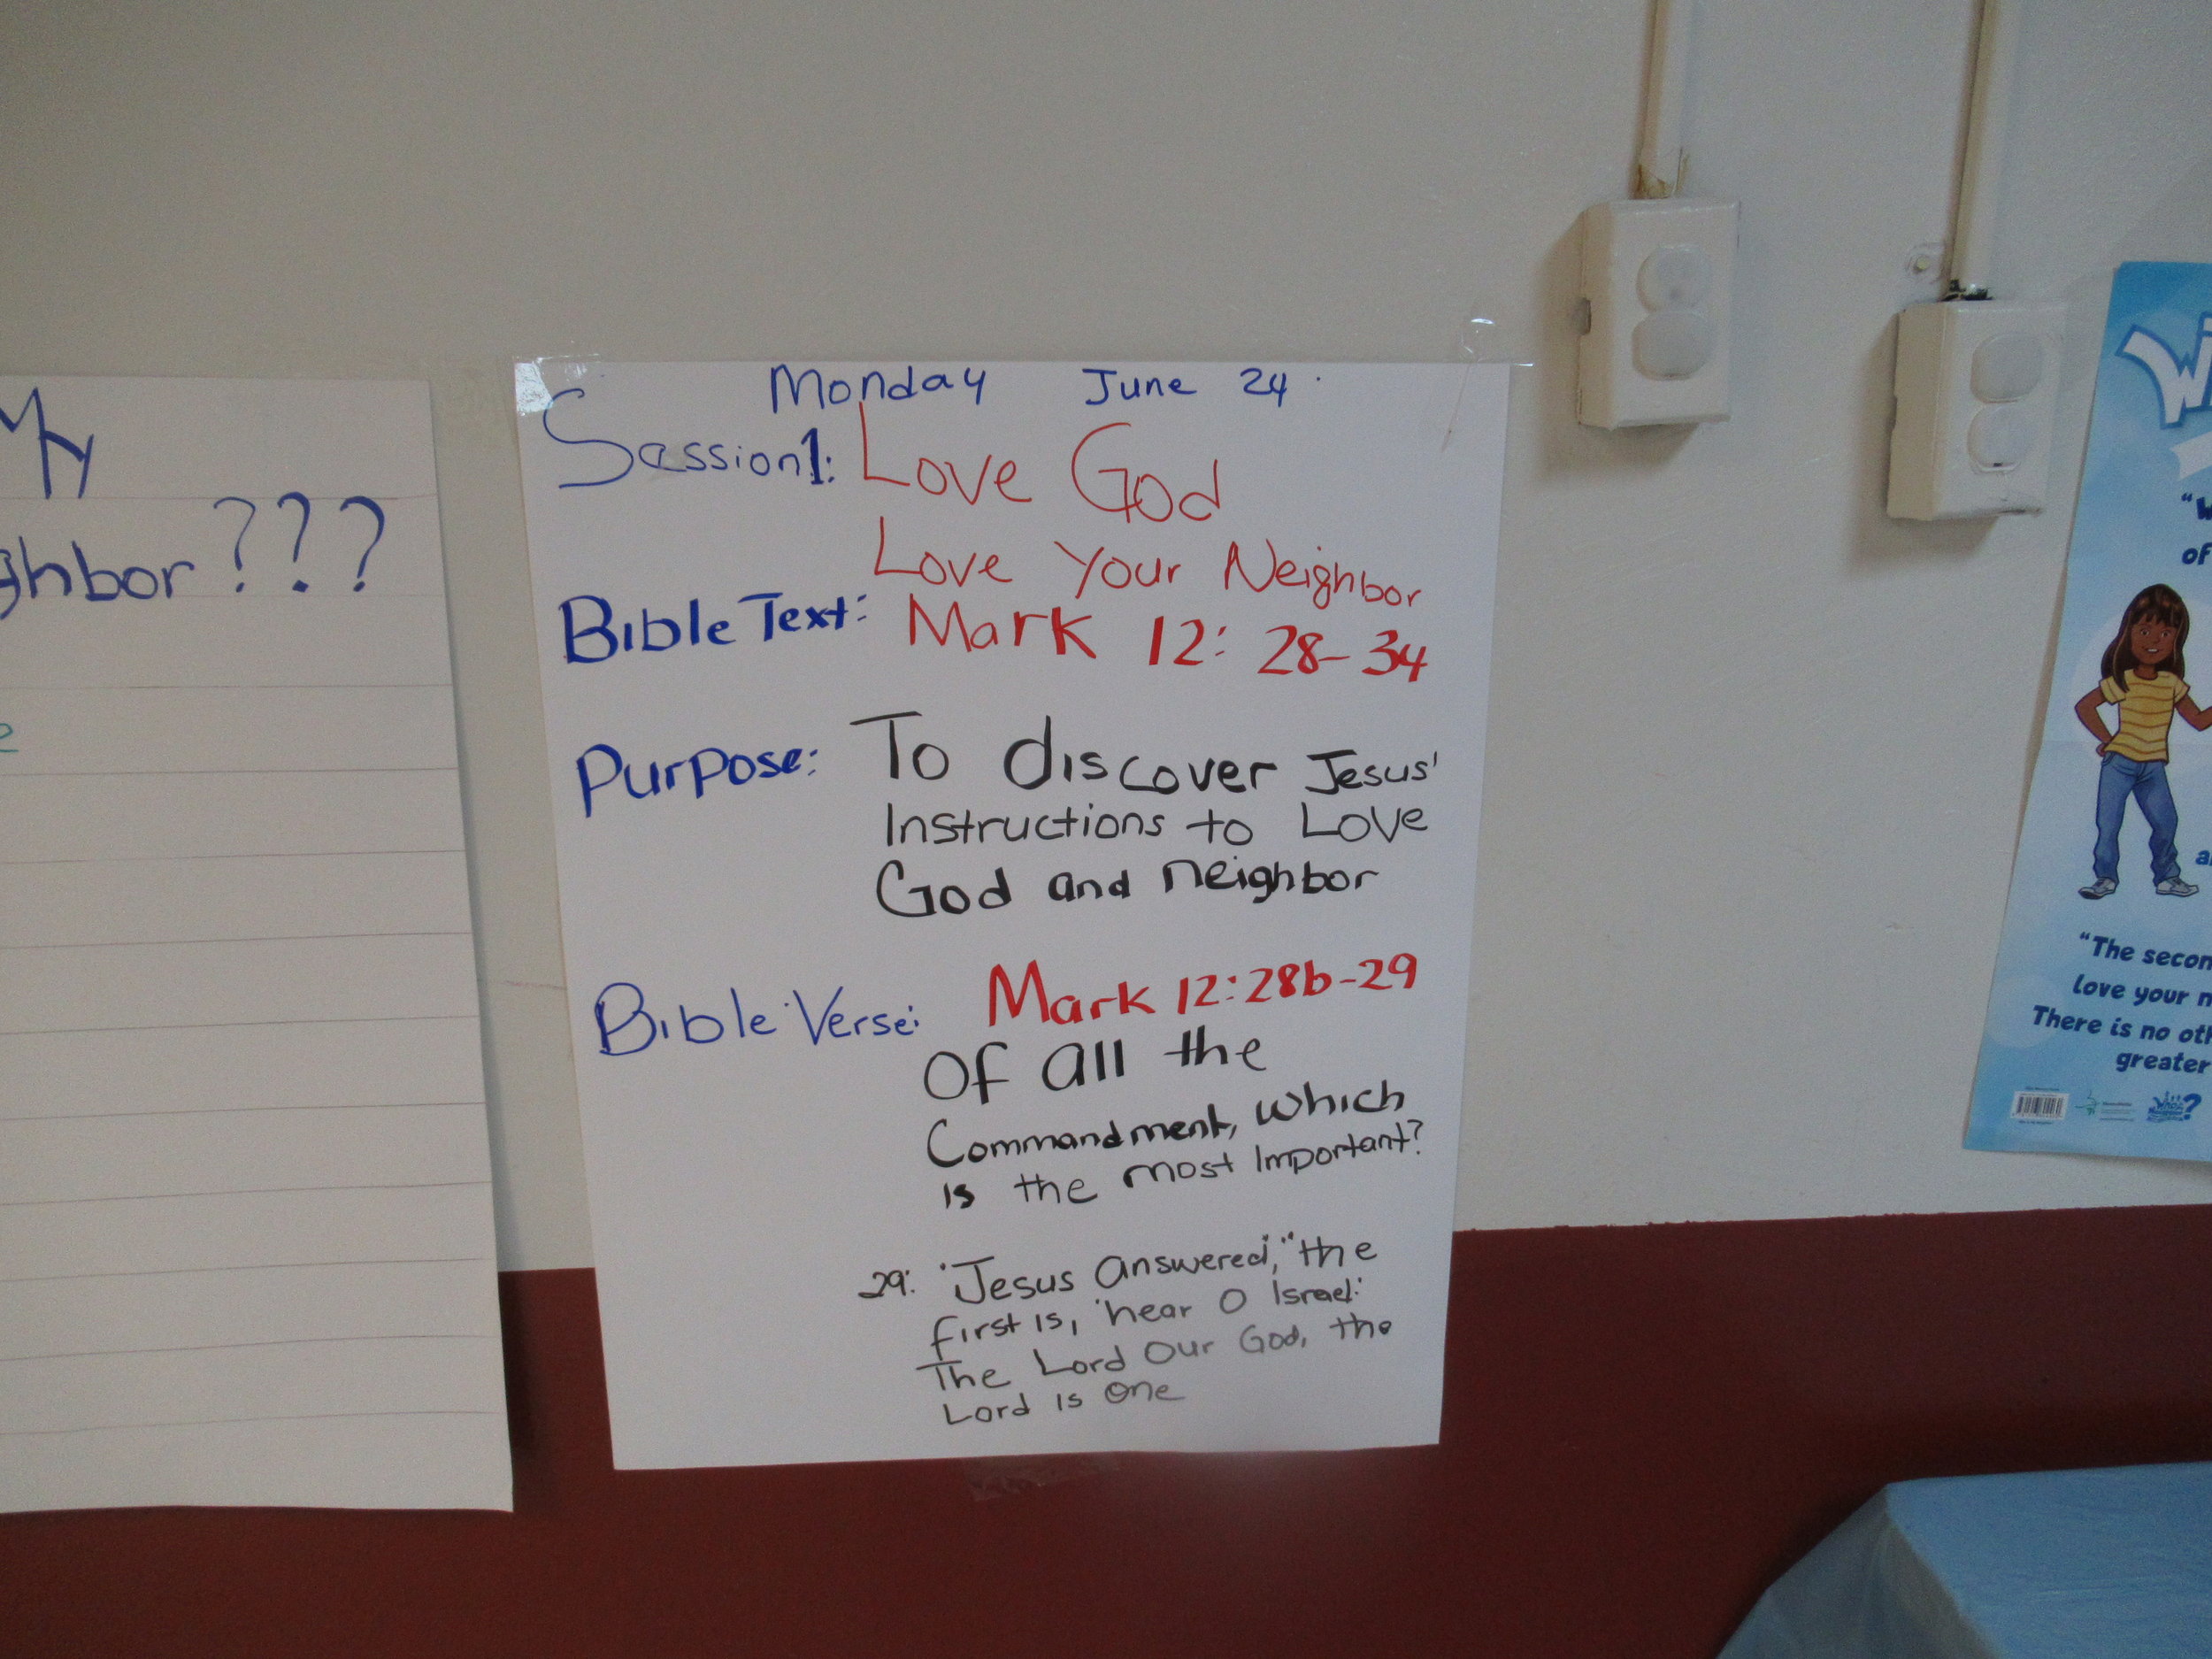 My
ghbor ???
Monday June 24
Sassion 1: Love God
Love Your Neighbor
Bible Text: Mark 12: 28-34
Purpose: To discover Jesus'
Instructions to Love
God and neighbor
Bible Verse: Mark 12:28b-29
Of all the
Commandment, which
is the most Important?
29: "Jesus answered, "the
first is, 'hear O Israel:
The Lord Our God, the
Lord is one
"The secon
love your n
There is no oth
greater